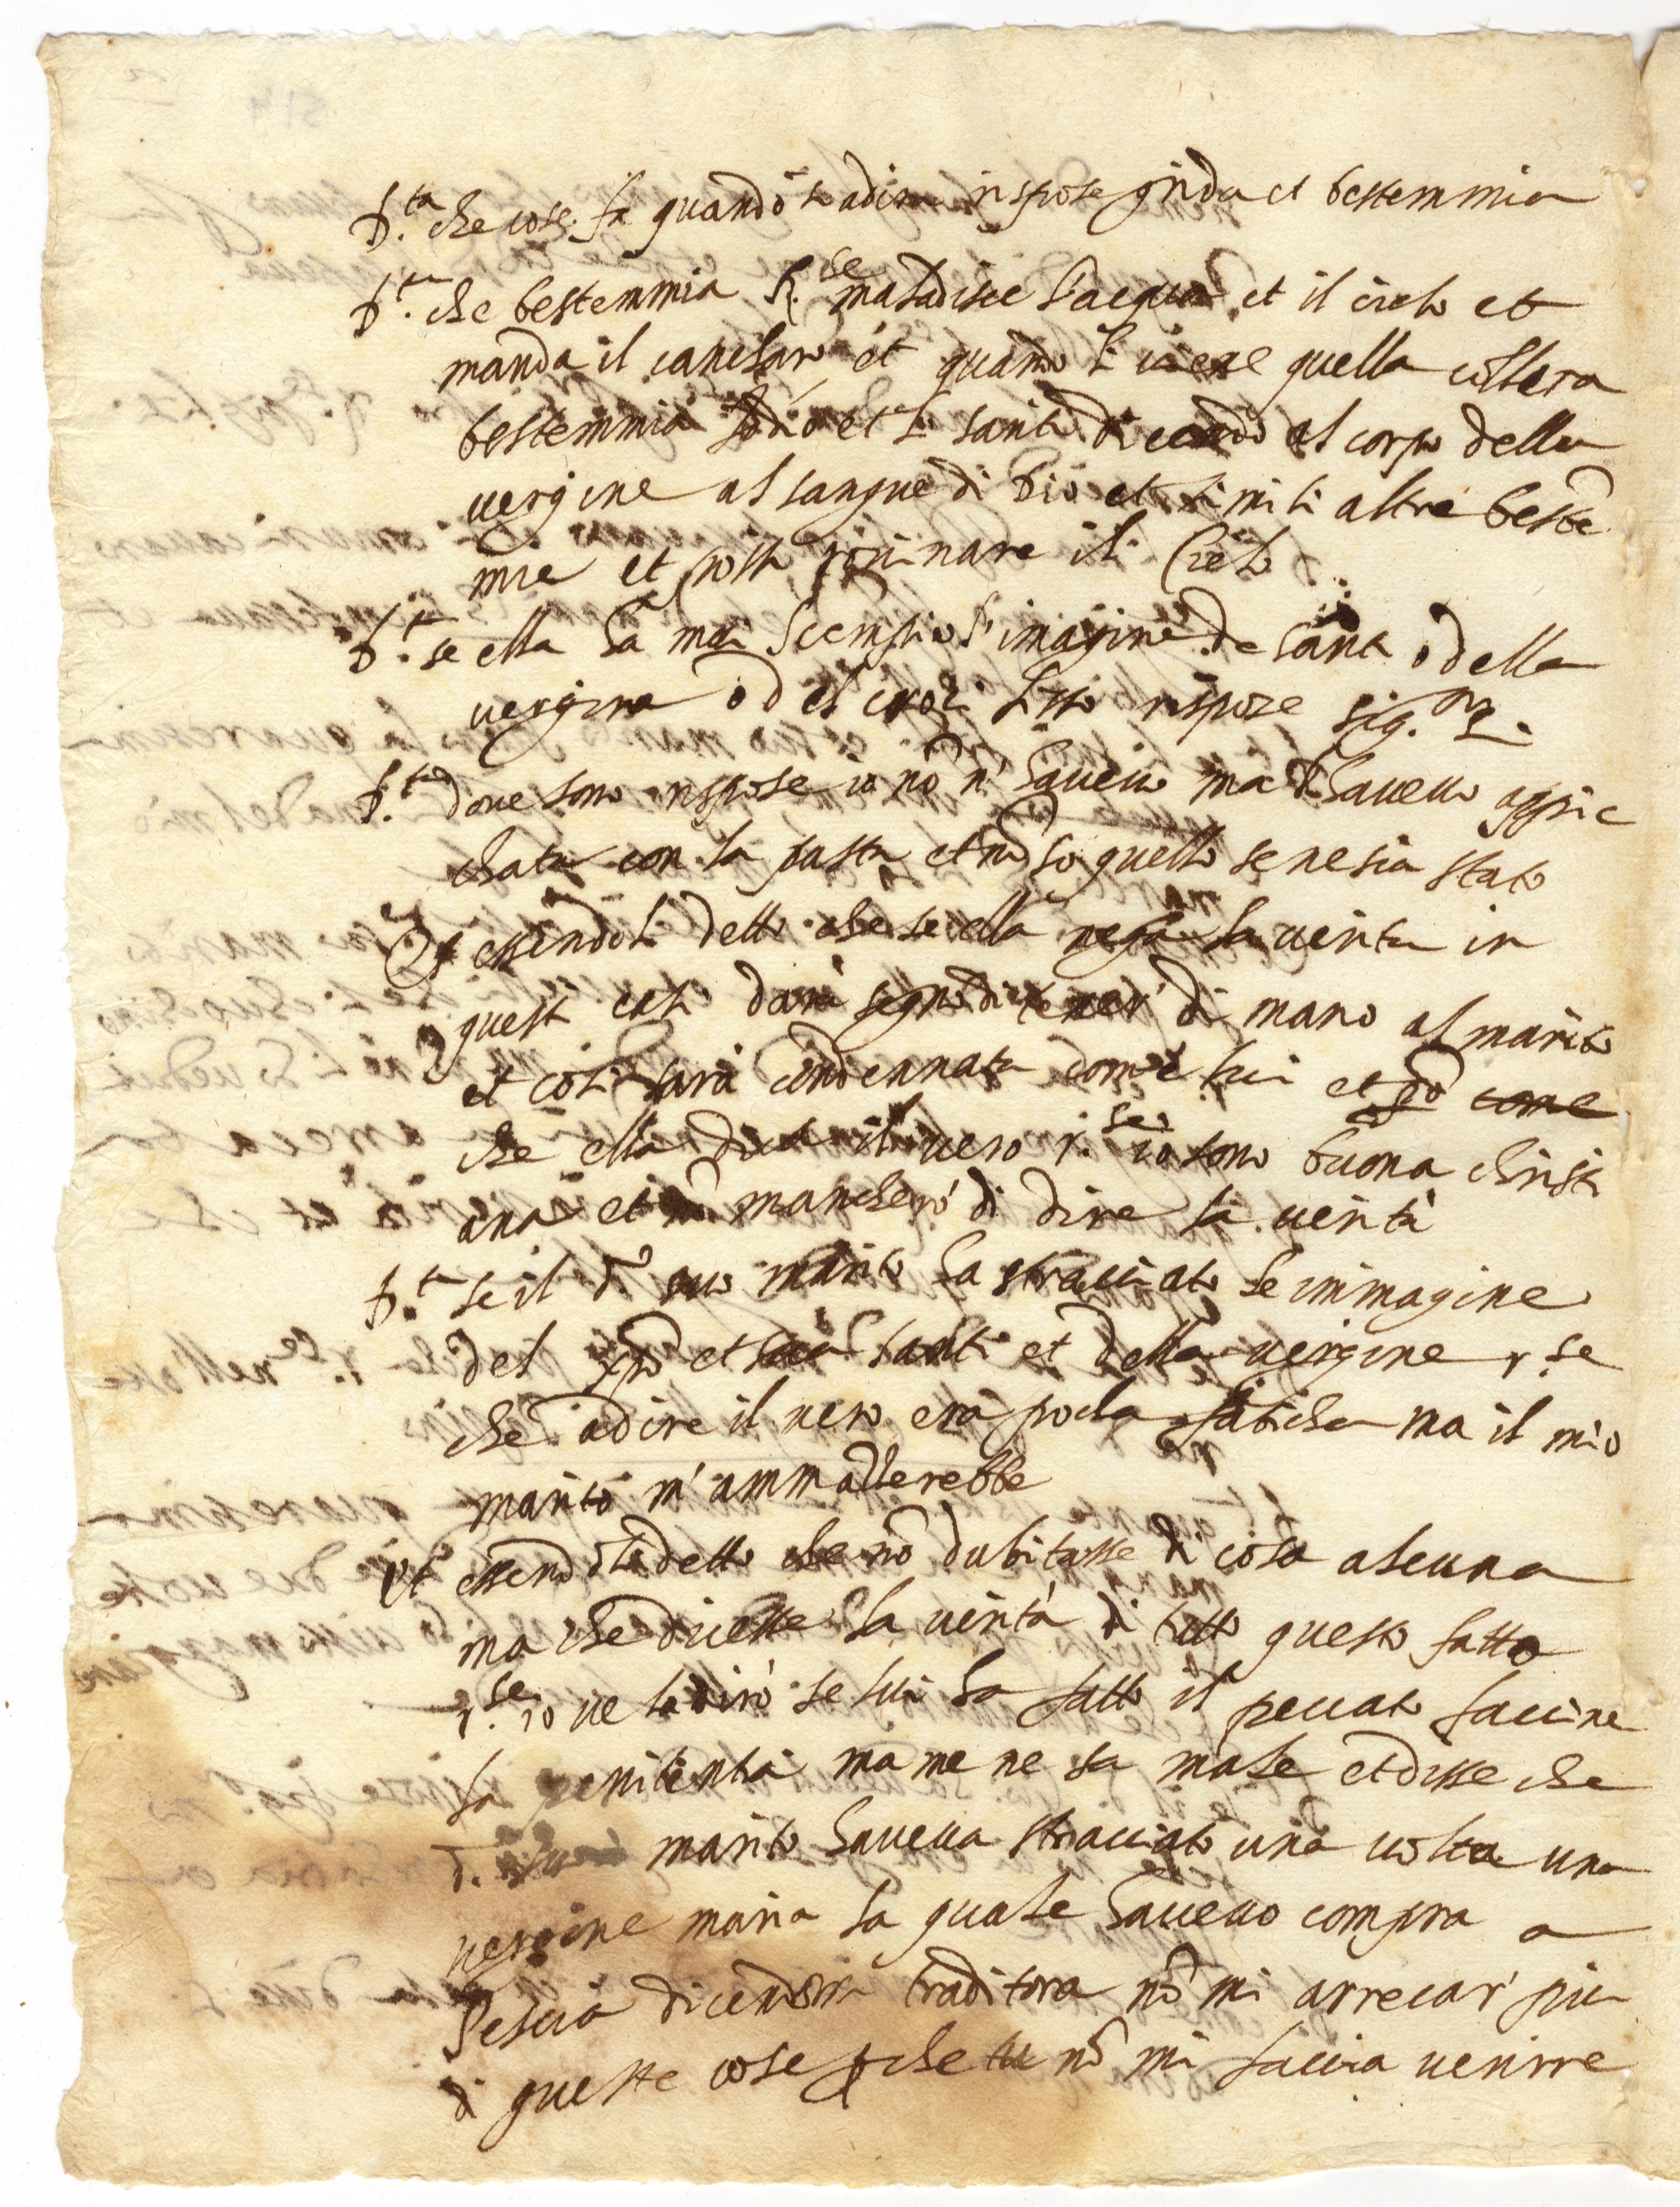 D.ta che cose fa quando s'adira rispose grida et bestemmia
D.ta che bestemmia R.se maladisce l'acqua et il cielo et
manda il canchero et quando li viene quella collera
bestemmia Iddio et li santi dicendo al corpo della
vergine al sangue di Dio et simili altre beste
mie et vole rovinare ili Cielo
D.ta se ella ha mai l'imagine de santi o della
vergine o del crocifisso rispose sig.re
D.ta dove sono rispose io nō n' havevo ma l'havevo appic
chata con la pasta et nō so quello se ne sia stato
Et essendoli detto che se ella nega la verita in
questi casi darà segno di tener di mano al marito
et così sarà condennata come lui et però
che ella dica il vero r.se io sono buona christi
ana et nō mancherò di dire la verità
D.ta se il d.o suo marito ha stracciato le immagine
del xpo et santi et della vergine r.se
che a dire il vero era pocha faticha ma il mio
marito m'ammazzerebbe
Et essendoli detto che nō dubitasse di cosa alcuna
ma che dicesse la verità di tutto questo fatto
r.se io ve la dirò se lui ha fatto il peccato faccine
la penitentia ma me ne sa male et disse che
d. suo marito haveva stracciato una volta una
vergine maria la quale havevo compra a
Pescia dicendomi traditora nō mi arrecar' piu
di queste cose che tu nō mi faccia venirre